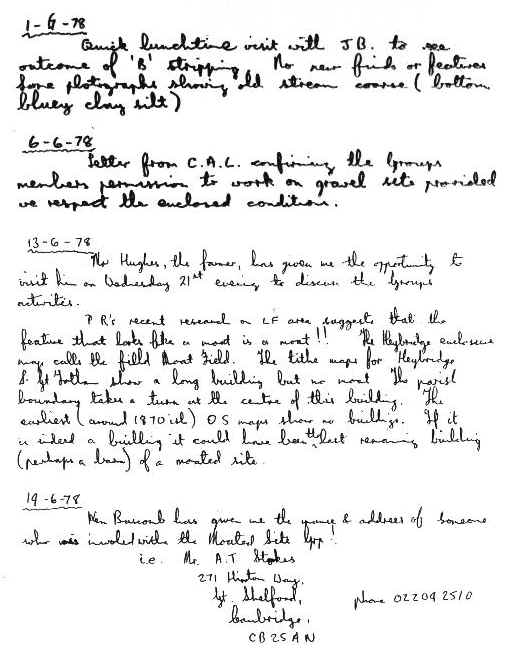 1-6-78
Quick lunchtime visit with J B. to see
outcome of 'B' stripping. No new finds or features
Some photographs showing old stream course (bottom
bluey clay silt)
6-6-78
Letter from C.A.L. confirming the Groups
members permission to work on gravel site provided
we respect the enclosed conditions.
13-6-78
Mr Hughes, the farmer, has given me the opportunity to
visit him on Wednesday 21st evening to discuss the Groups
activities.
P R's recent research on LF area suggests that the
feature that looks like a moat is a moat!! The Heybridge enclosure
map calls the field Moat Field. The tithe maps for Heybridge
& Gt Totham show a long building but no moat The parish
boundary takes a turn at the centre of this building. The
earliest (around 1870 ish) OS maps show no buildings. If it
is indeed a building it could have been the last remaining building
(perhaps a barn) of a moated site.
19-6-78
Ken has given me the name & address of someone
who was involved with the Moated Site Grp!
i.e. Mr. A.T. Stokes
271 Hinton Way,
Gt. Shelford,
Cambridge,
CB2 5AN
phone 022042510